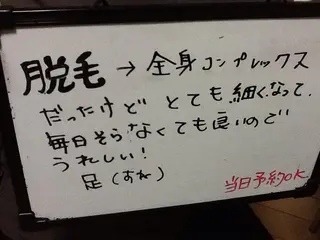 脱毛→全身コンプレックス
だったけど とても細くなって、
毎日そらなくても良いので
うれしい！
足（すね）
当日予約OK